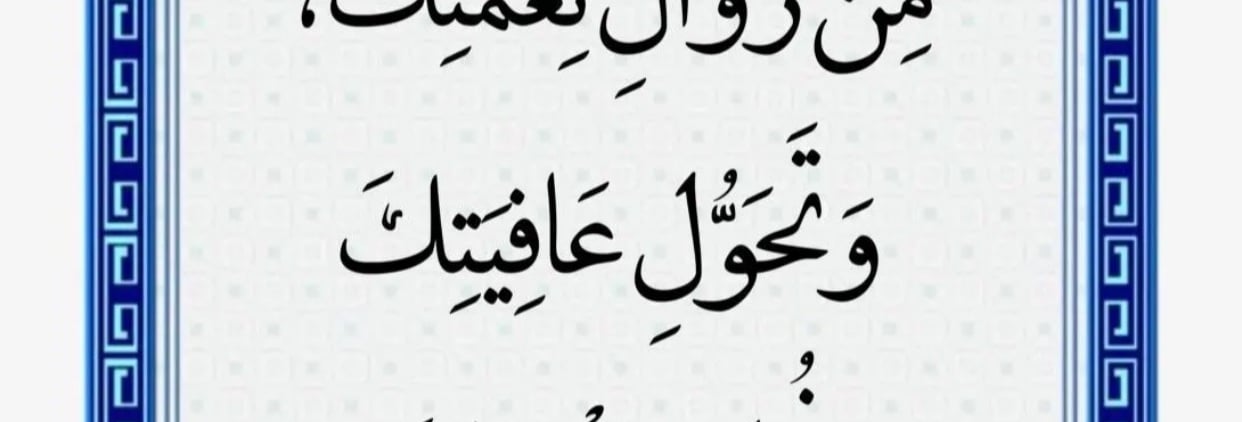 مِنْ زَوَالِ نِعْمَتِكَ،
وَتَحَوُّلِ عَافِيَتِكَ